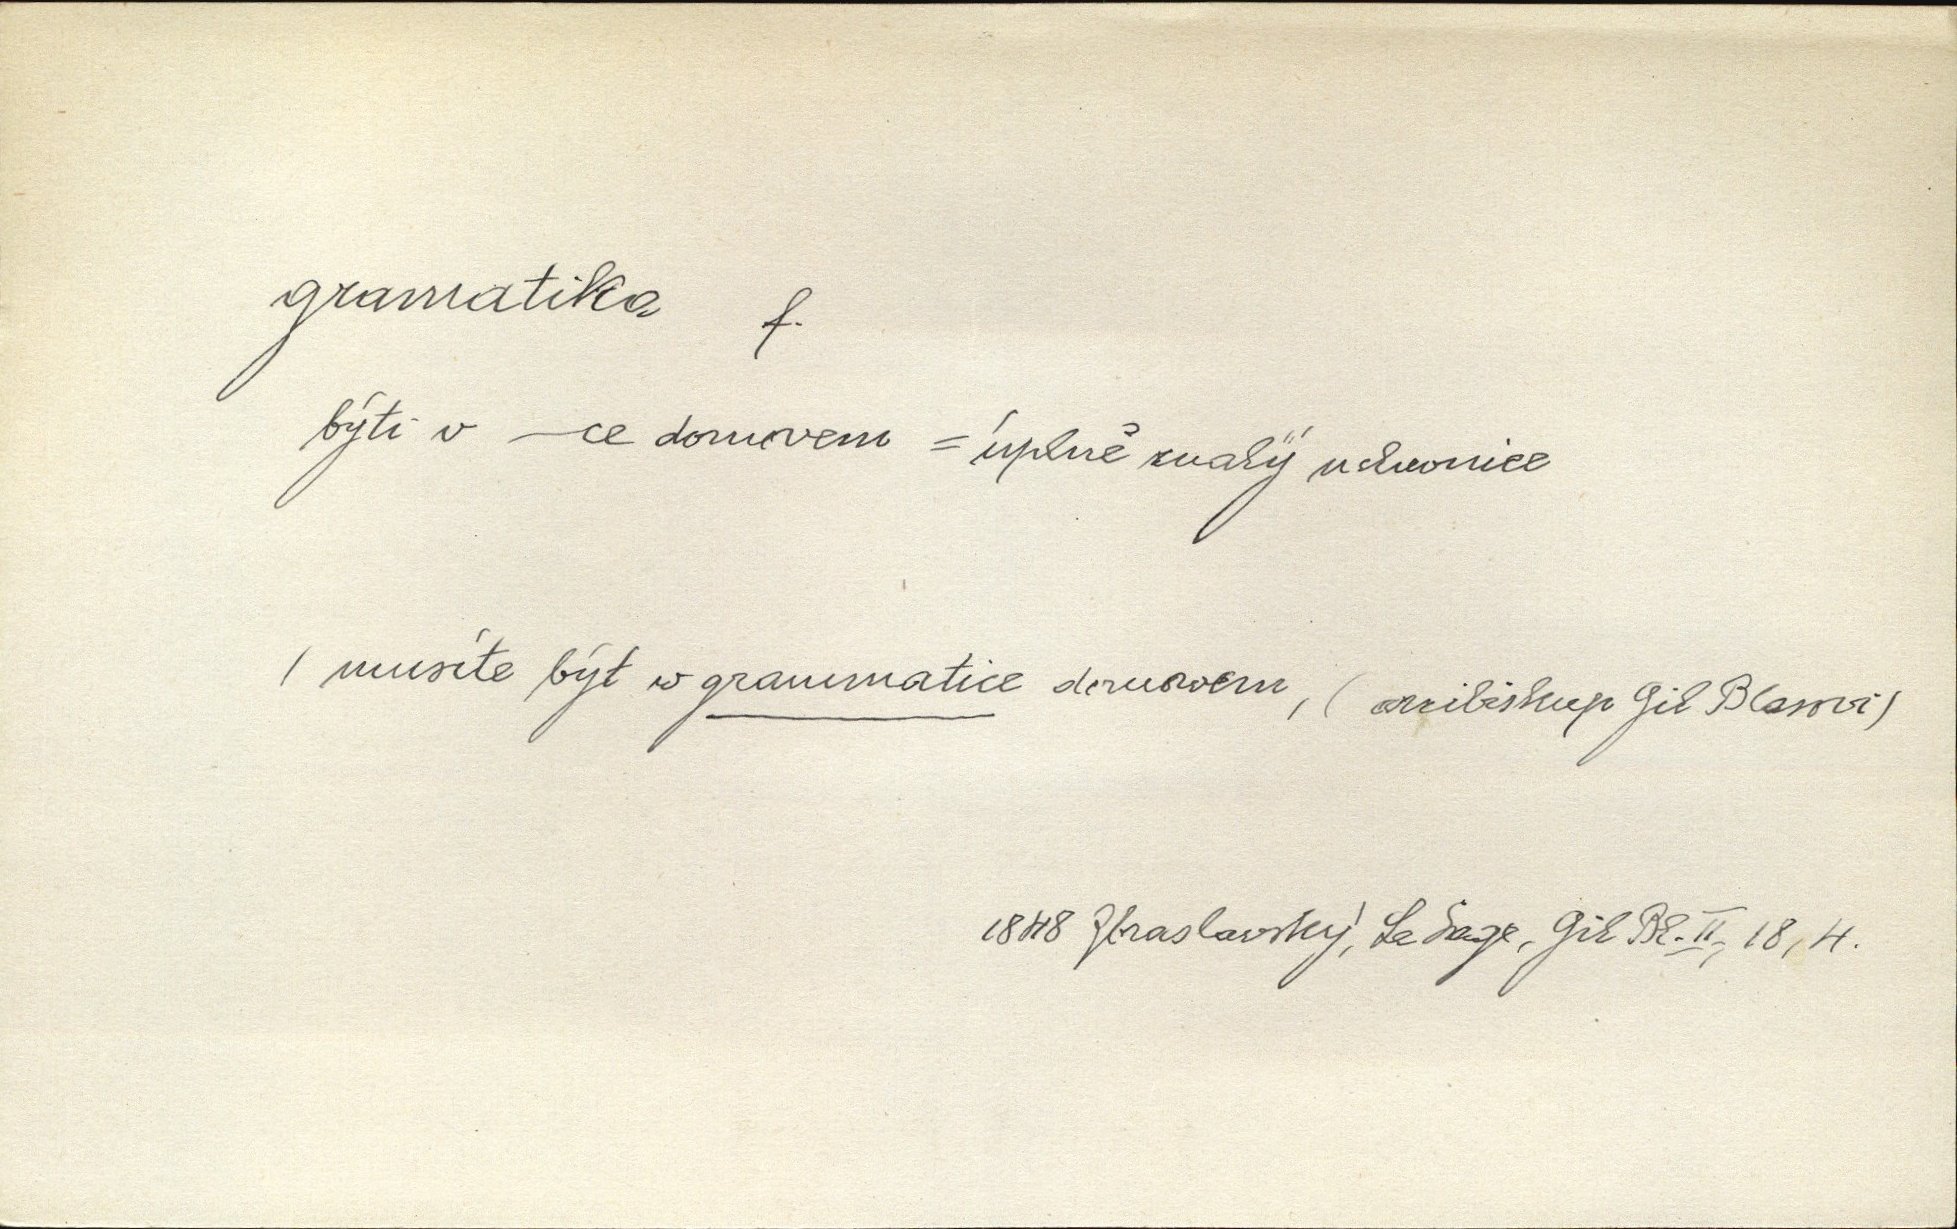 gramatika f.
býti v –ce domovem = úplně znalý mluvnice
/ musíte být w grammatice domowem, (arcibiskup Gil Blasovi)
1848 Zbraslavský, Le Sage, Gil Bl. II, 18, 4.